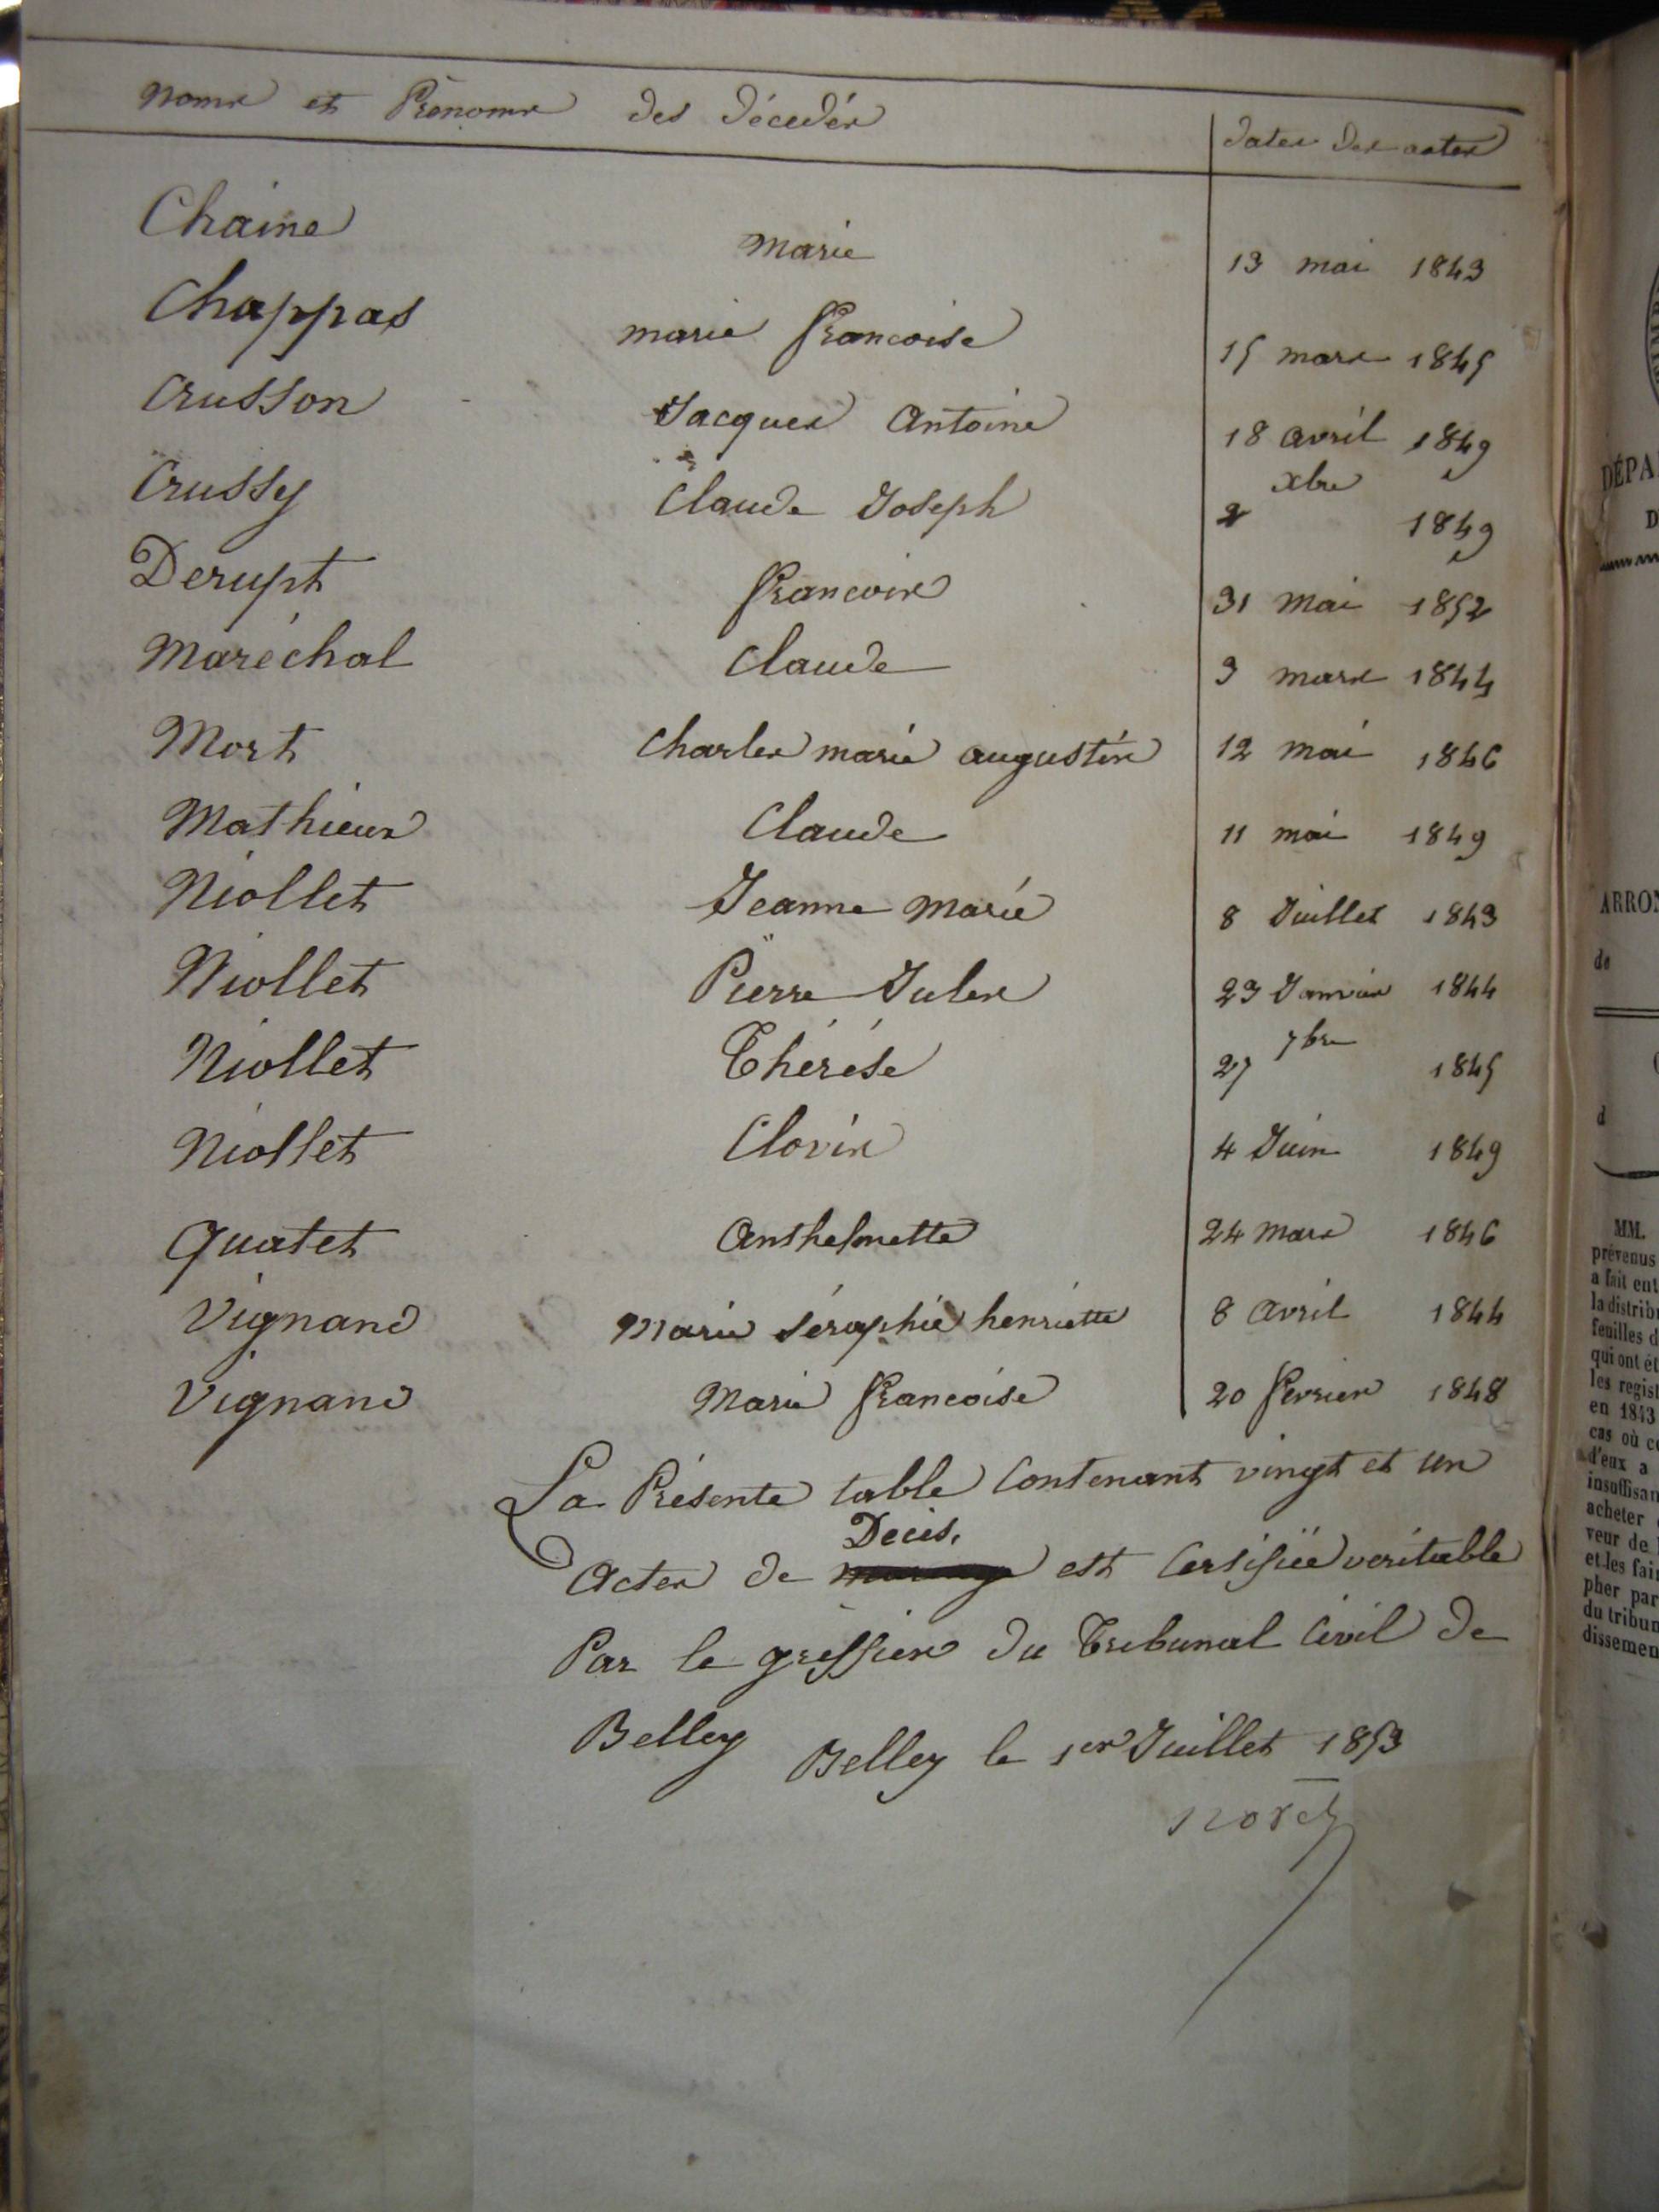 Noms et Prénoms des Décédés dates des actes
Chaine Marie 13 mai 1843
Chappas marie francoise 15 mars 1845
Crusson Jacques Antoine 18 avril 1849
Crussy Claude Joseph 2 xbre 1849
Derupt francois 31 Mai 1852
Maréchal Claude 3 mars 1844
Mort Charles marie augustin 12 mai 1846
Mathieux Claude 11 mai 1849
Niollet Jeanne Marie 8 Juillet 1843
Niollet Pierre Jules 23 Janvier 1844
Niollet Thérése 27 7bre 1845
Niollet Clovis 4 Juin 1849
Quatet Anthelmette 24 mars 1846
Vignand Marie séraphie henriette 8 avril 1844
Vignand Marie francoise 20 fevrier 1848
La Présente table Contenant vingt et un
Décés.
Actes de est Certifiée veritable
Par le greffier du Tribunal Civil de
Belley Belley le 1er Juillet 1853
DÉPA
D
ARRON
de
d
MM.
prévenus
a fait ent
la distrib
feuilles d
qui ont ét
les regist
en 1843
cas où c
d'eux a
insuffisan
acheter
veur de
et les fair
pher par
du tribun
dissemen